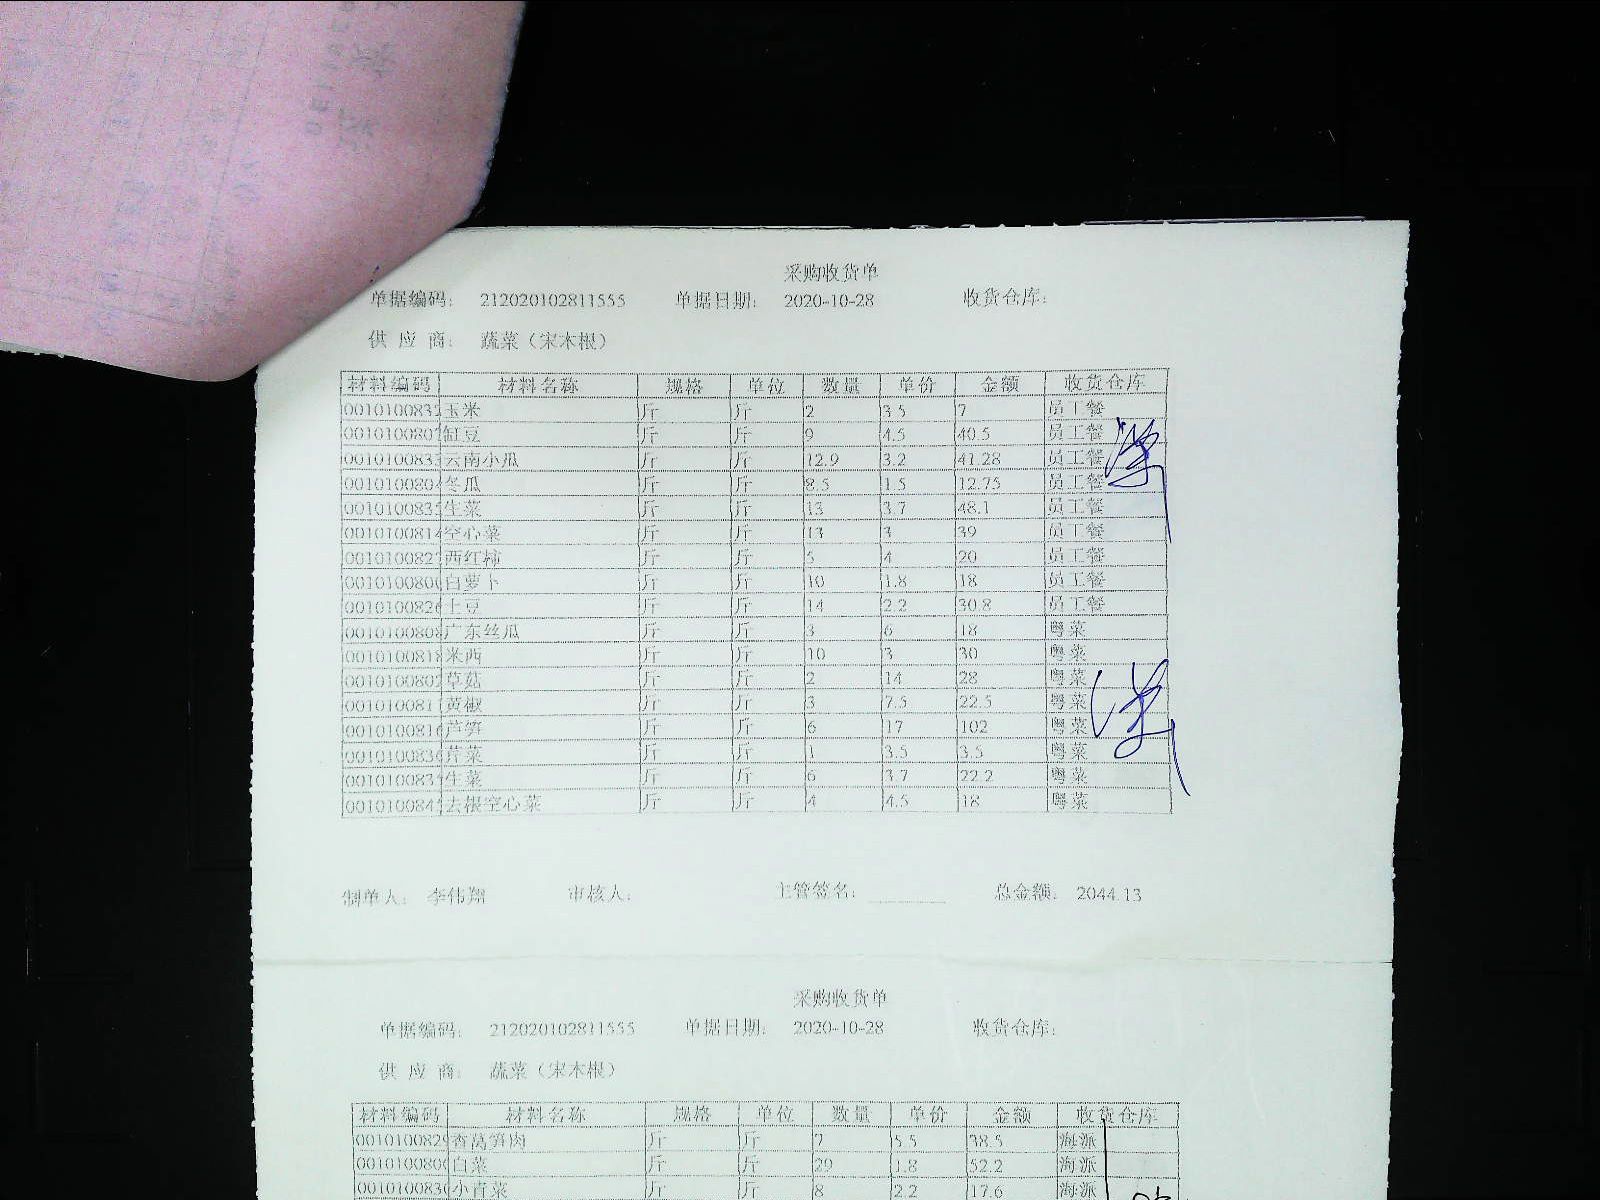 采购收货单
单据编码： 212020102811555 单据日期： 2020-10-28 收货仓库：
供 应 商： 蔬菜（宋木根）
材料编码 材料名称 规格 单位 数量 单价 金额 收货仓库
001010083 玉米 斤 斤 2 3.5 7 员工餐
001010080 缸豆 斤 斤 9 4.5 40.5 员工餐
001010083 云南小瓜 斤 斤 12.9 3.2 41.28 员工餐
001010080 冬瓜 斤 斤 8.5 1.5 12.75 员工餐
001010083 生菜 斤 斤 13 3.7 48.1 员工餐
001010081 空心菜 斤 斤 13 3 39 员工餐
001010082 西红柿 斤 斤 5 4 20 员工餐
001010080 白萝卜 斤 斤 10 1.8 18 员工餐
001010082 土豆 斤 斤 14 2.2 30.8 员工餐
001010080 广东丝瓜 斤 斤 3 6 18 粤菜
001010081 米西 斤 斤 10 3 30 粤菜
001010080 草菇 斤 斤 2 14 28 粤菜
001010081 黄椒 斤 斤 3 7.5 22.5 粤菜
001010081 芦笋 斤 斤 6 17 102 粤菜
001010083 芹菜 斤 斤 1 3.5 3.5 粤菜
001010083 生菜 斤 斤 6 3.7 22.2 粤菜
001010084 去根空心菜 斤 斤 4 4.5 18 粤菜
制单人： 李伟翔 审核人： 主管签名： 总金额： 2044.13
采购收货单
单据编码： 212020102811555 单据日期： 2020-10-28 收货仓库：
供 应 商： 蔬菜（宋木根）
材料编码 材料名称 规格 单位 数量 单价 金额 收货仓库
001010082 香莴笋肉 斤 斤 7 5.5 38.5 海派
001010080 白菜 斤 斤 29 1.8 52.2 海派
001010083 小青菜 斤 斤 8 2.2 17.6 海派